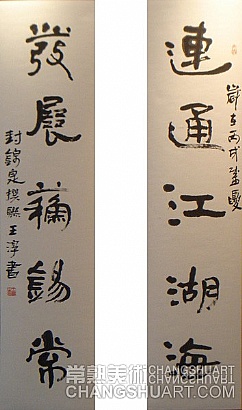 連通江湖海
歲在丙戌盛夏
發展蘇錫常
封錦晃撰聯王淳書
常熟美術
CHANGSHUART
CHANGSHUART.COM